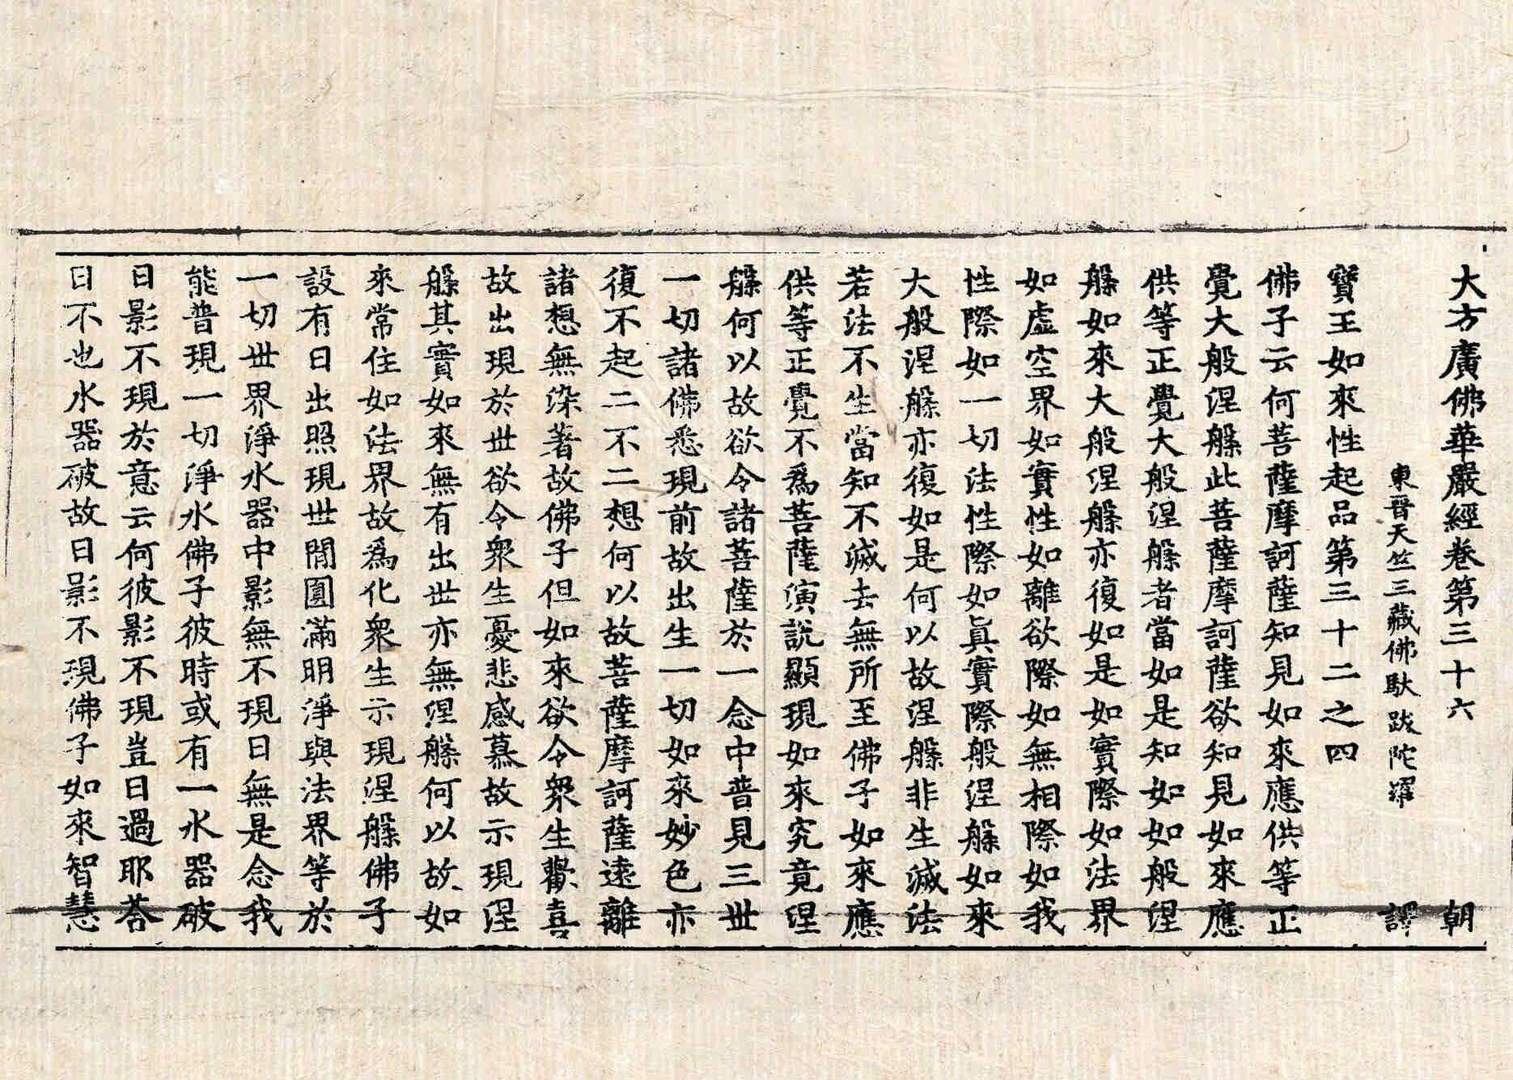 大方廣佛華嚴經卷第三十六 朝
東晉天竺三藏佛馱跋陀羅 譯
寶王如來性起品第三十二之四
佛子云何菩薩摩訶薩知見如來應供等正
覺大般涅槃此菩薩摩訶薩欲知見如來應
供等正覺大般涅槃者當如是知如如般涅
槃如來大般涅槃亦復如是如實際如法界
如虛空界如實性如離欲際如無相際如我
性際如一切法性際如眞實際般涅槃如來
大般涅槃亦復如是何以故涅槃非生滅法
若法不生當知不滅去無所至佛子如來應
供等正覺不爲菩薩演說顯現如來究竟涅
槃何以故欲令諸菩薩於一念中普見三世
一切諸佛悉現前故出生一切如來妙色亦
復不起二不二想何以故菩薩摩訶薩遠離
諸想無染著故佛子但如來欲令衆生歡喜
故出現於世欲令衆生憂悲感慕故示現涅
槃其實如來無有出世亦無涅槃何以故如
來常住如法界故爲化衆生示現涅槃佛子
設有日出照現世閒圓滿明淨與法界等於
一切世界淨水器中影無不現日無是念我
能普現一切淨水佛子彼時或有一水器破
日影不現於意云何彼影不現豈日過耶荅
曰不也水器破故日影不現佛子如來智慧